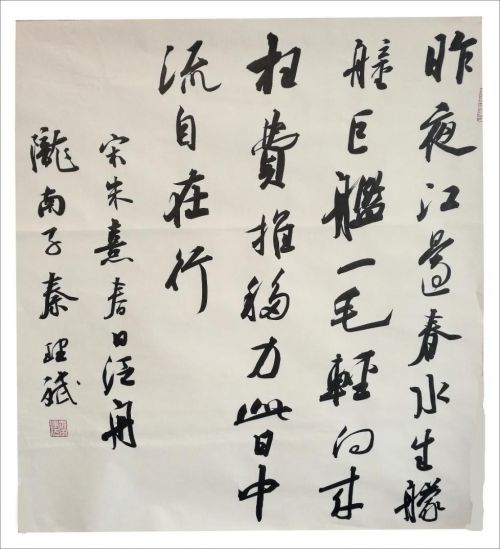 昨夜江邊春水生艨
艟巨艦一毛輕向來
枉費推移力此日中
流自在行
宋朱熹春日泛舟
隴南子秦